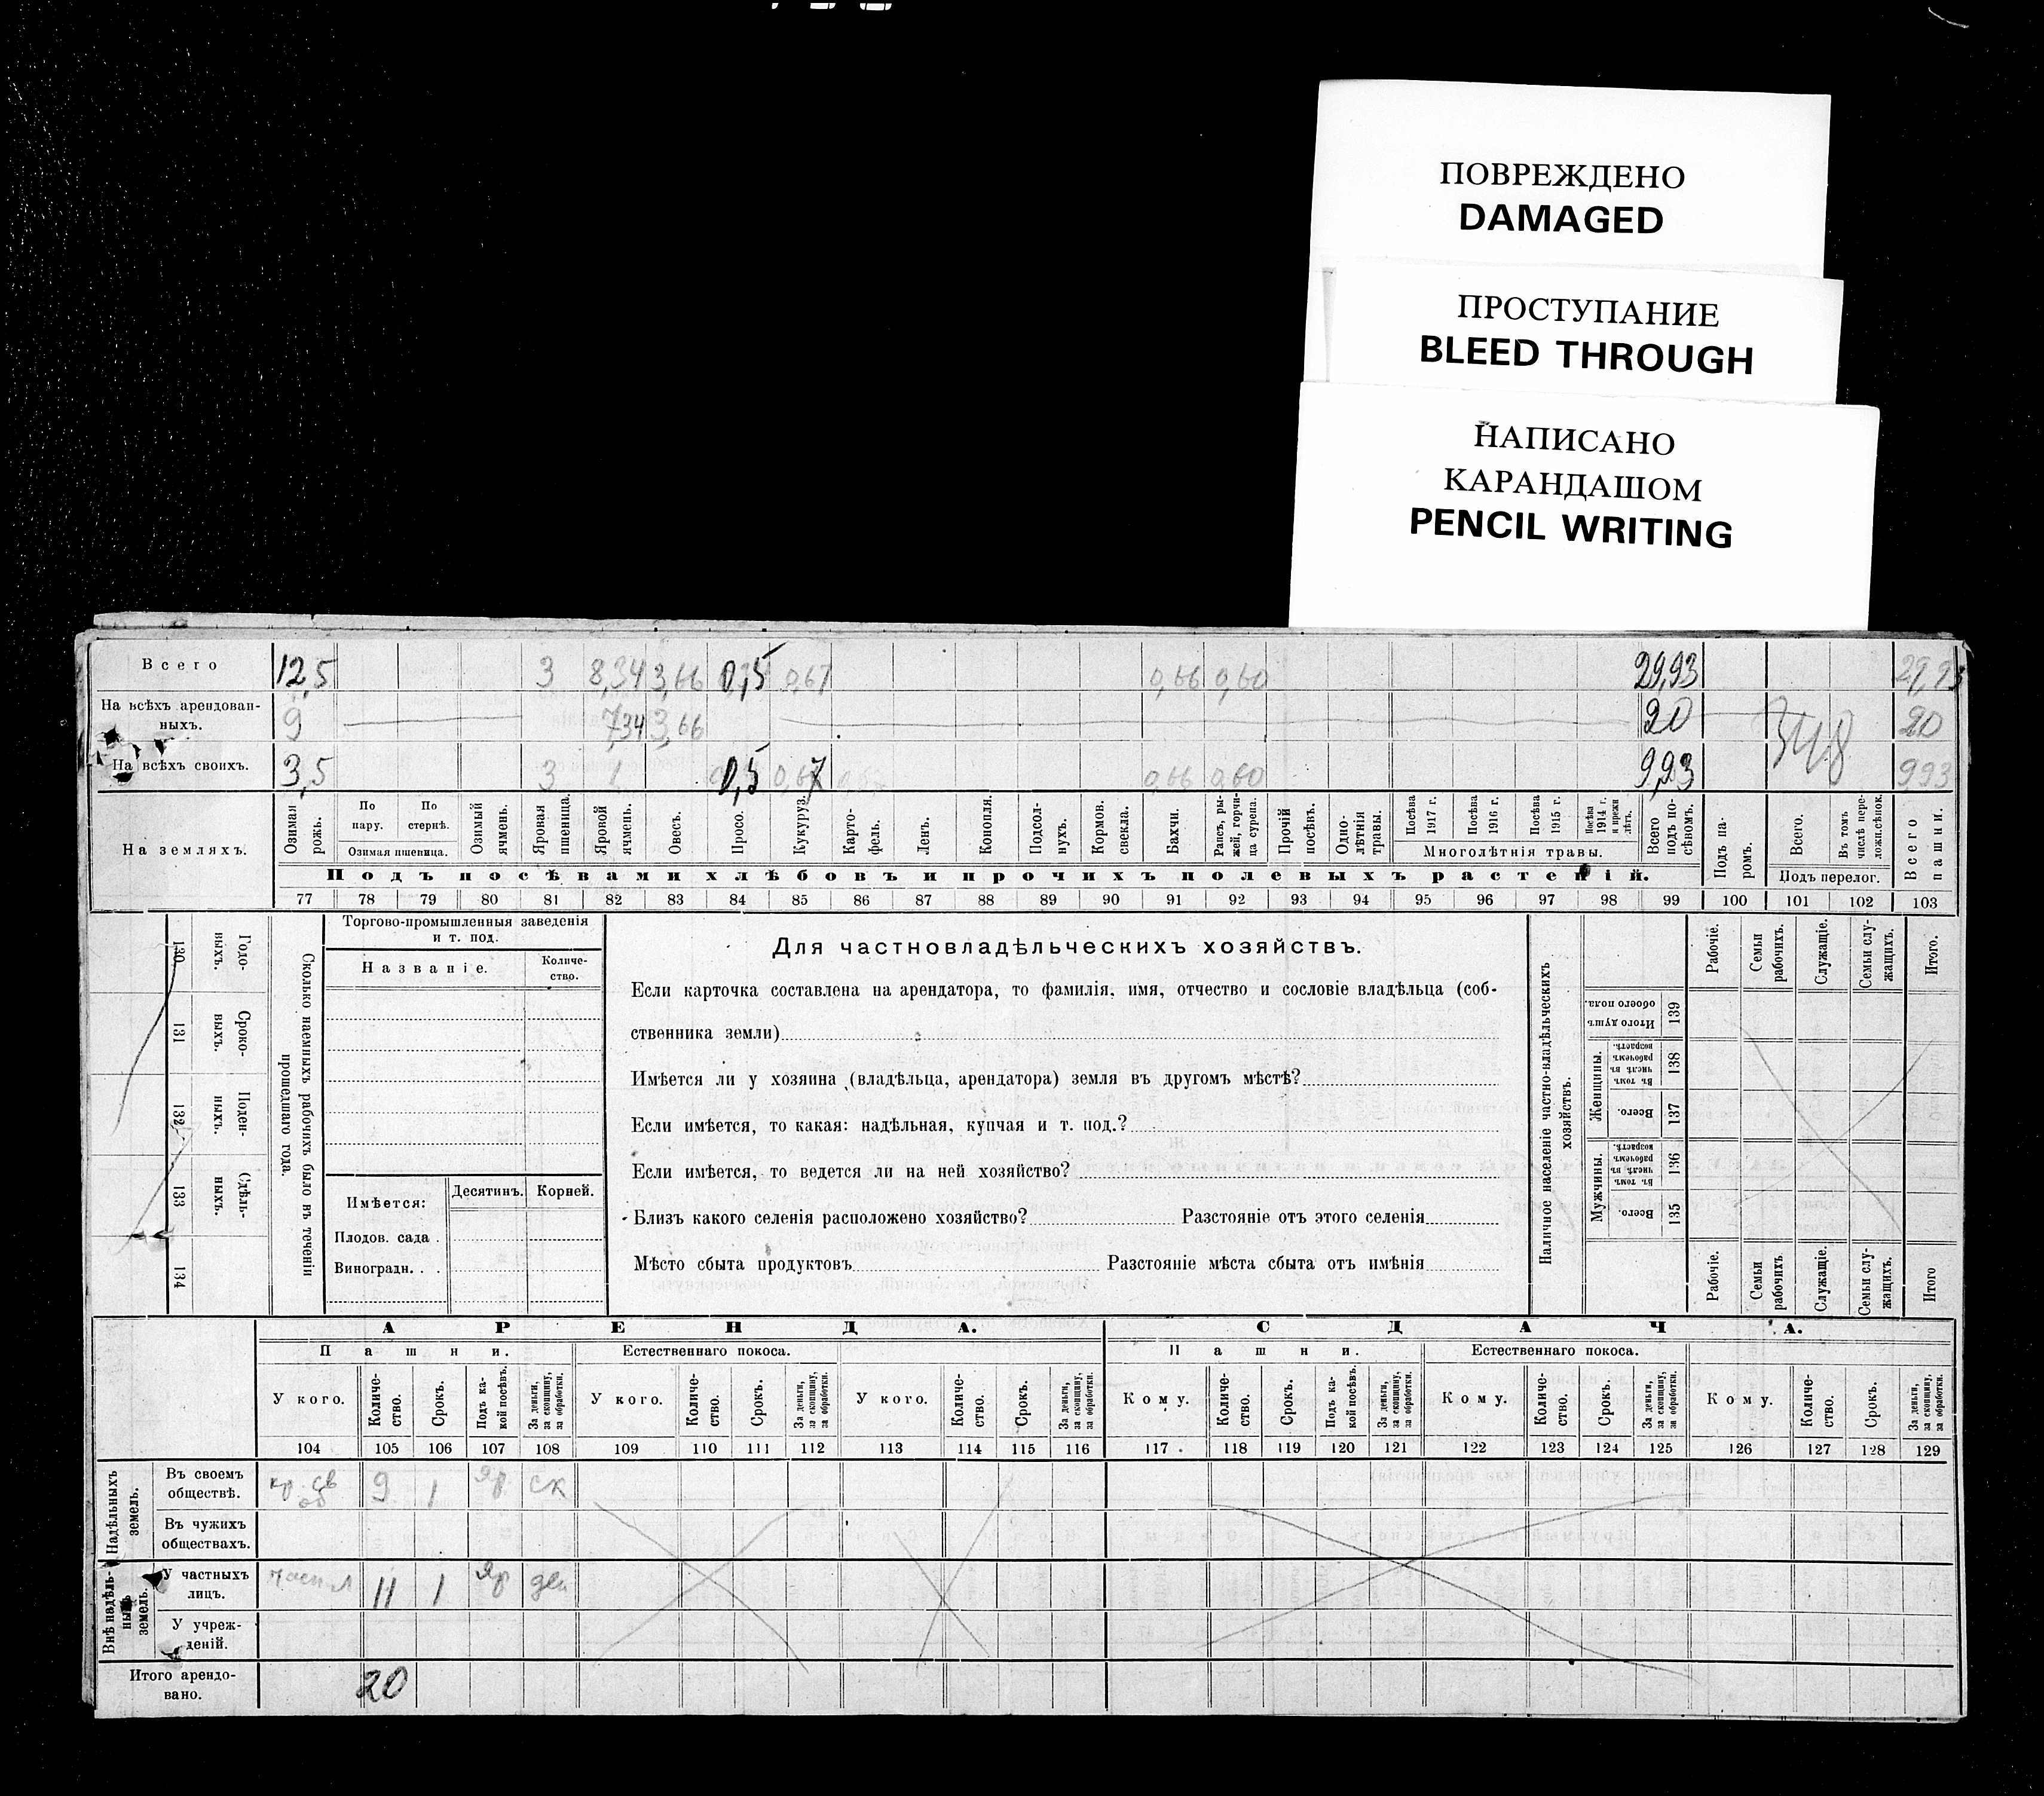 ПОВРЕЖДЕНО
DAMAGED
ПРОСТУПАНИЕ
BLEED THROUGH
НАПИСАНО
КАРАНДАШОМ
PENCIL WRITING
Всего 12,5 3 8,34 3,66 0,5 0,67 0,66 0,60 29,93 29,93
На всѣхъ арендован-
ныхъ. 9 7,34 3,66 20 20
348
На всѣхъ своихъ. 3,5 3 1 0,5 0,67 0,66 0,60 9,93 9,93
На земляхъ.
Озимая рожь.
По пару.
По стернѣ.
Озимая пшеница.
Озимый ячмень.
Яровая пшеница.
Яровой ячмень.
Овесъ.
Просо.
Кукуруз.
Карто-
фель.
Ленъ.
Конопля.
Подсол-
нухъ.
Кормов. свекла.
Бахчи.
Рапсъ, ры-
жей, горчи-
ца сурепа.
Прочій посѣвъ.
Одно-
лѣтнія травы.
Посѣва 1917 г.
Посѣва 1916 г.
Посѣва 1915 г.
Посѣва 1914 г. и прежн лѣтъ.
Многолѣтнія травы.
Всего подъ по-
сѣвомъ.
Подъ па-
ромъ.
Всего.
Въ томъ числѣ пере-
ложн.сѣнок.
Подъ перелог.
Всего пашни.
Подъ посѣвами хлѣбовъ и прочихъ полевыхъ растеній.
77 78 79 80 81 82 83 84 85 86 87 88 89 90 91 92 93 94 95 96 97 98 99 100 101 102 103
130 Годо-
выхъ.
131 Сроко-
выхъ.
132 Поден-
ныхъ.
133 Сдѣль-
ныхъ.
134
Сколько наемныхъ рабочихъ было въ теченіи
прошедшаго года.
Торгово-промышленныя заведенія
и т. под.
Названіе.
Количе-
ство.
Имѣется: Десятинъ. Корней.
Плодов. сада .
Виноградн. . .
Для частновладѣльческихъ хозяйствъ.
Если карточка составлена на арендатора, то фамилія, имя, отчество и сословіе владѣльца (соб-
ственника земли)
Имѣется ли у хозяина (владѣльца, арендатора) земля въ другомъ мѣстѣ?
Если имѣется, то какая: надѣльная, купчая и т. под.?
Если имѣется, то ведется ли на ней хозяйство?
Близъ какого селенія расположено хозяйство? Разстояніе отъ этого селенія
Мѣсто сбыта продуктовъ Разстояніе мѣста сбыта отъ имѣнія
Наличное населеніе частно-владѣльческихъ
хозяйствъ.
Рабочіе.
Семьи рабочихъ.
Служащіе.
Семьи слу-
жащихъ.
Итого.
Итого душъ обоего пола. 139
Женщины.
Въ томъ числѣ въ рабочемъ возрастѣ. 138
Всего. 137
Мужчины.
Въ томъ числѣ въ рабочемъ возрастѣ. 136
Всего. 135
Рабочіе.
Семьи рабочихъ
Служащіе.
Семьи слу-
жащихъ.
Итого
АРЕНДА. СДАЧА.
Пашни. Естественнаго покоса. Пашни. Естественнаго покоса.
У кого. Количе-
ство. Срокъ. Подъ ка-
кой посѣвъ. За деньги, за скопщину, за обработки.
У кого. Количе-
ство. Срокъ. За деньги, за скопщину, за обработки.
У кого. Количе-
ство. Срокъ. За деньги, за скопщину, за обработки.
Кому. Количе-
ство. Срокъ. Подъ ка-
кой посѣвъ. За деньги, за скопщину, за обработки.
Кому. Количе-
ство. Срокъ. За деньги, за скопщину, за обработки.
Кому. Количе-
ство. Срокъ. За деньги, за скопщину, за обработки.
104 105 106 107 108 109 110 111 112 113 114 115 116 117 118 119 120 121 122 123 124 125 126 127 128 129
Надѣльныхъ земель.
Въ своемъ
обществѣ. кр. св об 9 1 яр. ск
Въ чужихъ
обществахъ.
Внѣ надѣль-
ныхъ земель.
У частныхъ
лицъ. 11 1 яр ден
У учреж-
деній.
Итого арендо-
вано. 20